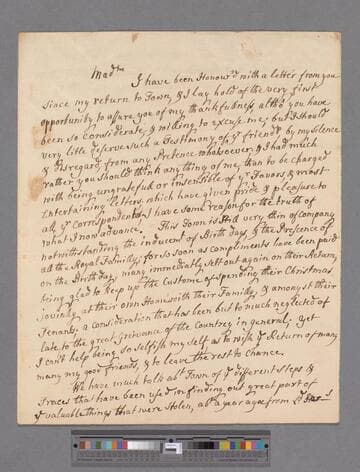 Madm
I have been Honour'd with a letter from you
since my return to Town, & I lay hold of the very first
opportunity to assure you of my thankfulness, altho' you have
been so considerate, & willing to excuse me; but I should
very little deserve such a Testimony of yr friendp by my silence
& disregard from any Pretence whatsoever, & I had much
rather you should think anything of me, than to be charged
with being ungrateful or insensible of yr Favors & most
Entertaining Letters which have given pride & pleasure to
all yr Correspondents & I have some reason for the truth of
what I now advance. This Town is still very thin of company
notwithstanding the inducemt of Birth days, & the Presence of
all the Royal Family; for so soon as compliments have been paid
on the Birth day, many immediately set out again on their Return,
being glad to keep up the Custome of spending their Christmas
jovially, at their own Homes with their Familys, & amongst their
Tenants; a consideration that has been but to much neglected of
late to the great Grievance of the Country in general; yet
I can't help being so selfish my self as to wish ye Return of many
many my good friends, & to leave the rest to chance.
We have much talk abt Town of ye different steps &
Traces that have been used in finding out great part of
ye valuable things that were stolen, abt a year agoe from